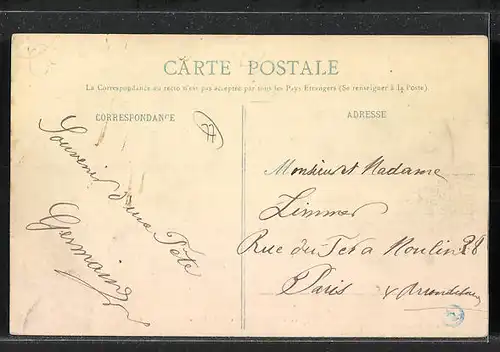 CARTE POSTALE
La Correspondance au recto n'est pas acceptée par tous les Pays Etrangers (Se renseigner à la Poste).
CORRESPONDANCE
ADRESSE
Souvenir d'une Fête
Germaine
Monsieur et Madame
Zimmer
Rue du Moulin 28
Paris